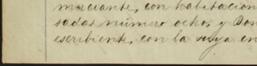 merciante, con habitacion
sadas número ocho; y Don
escribiente, con la suya en